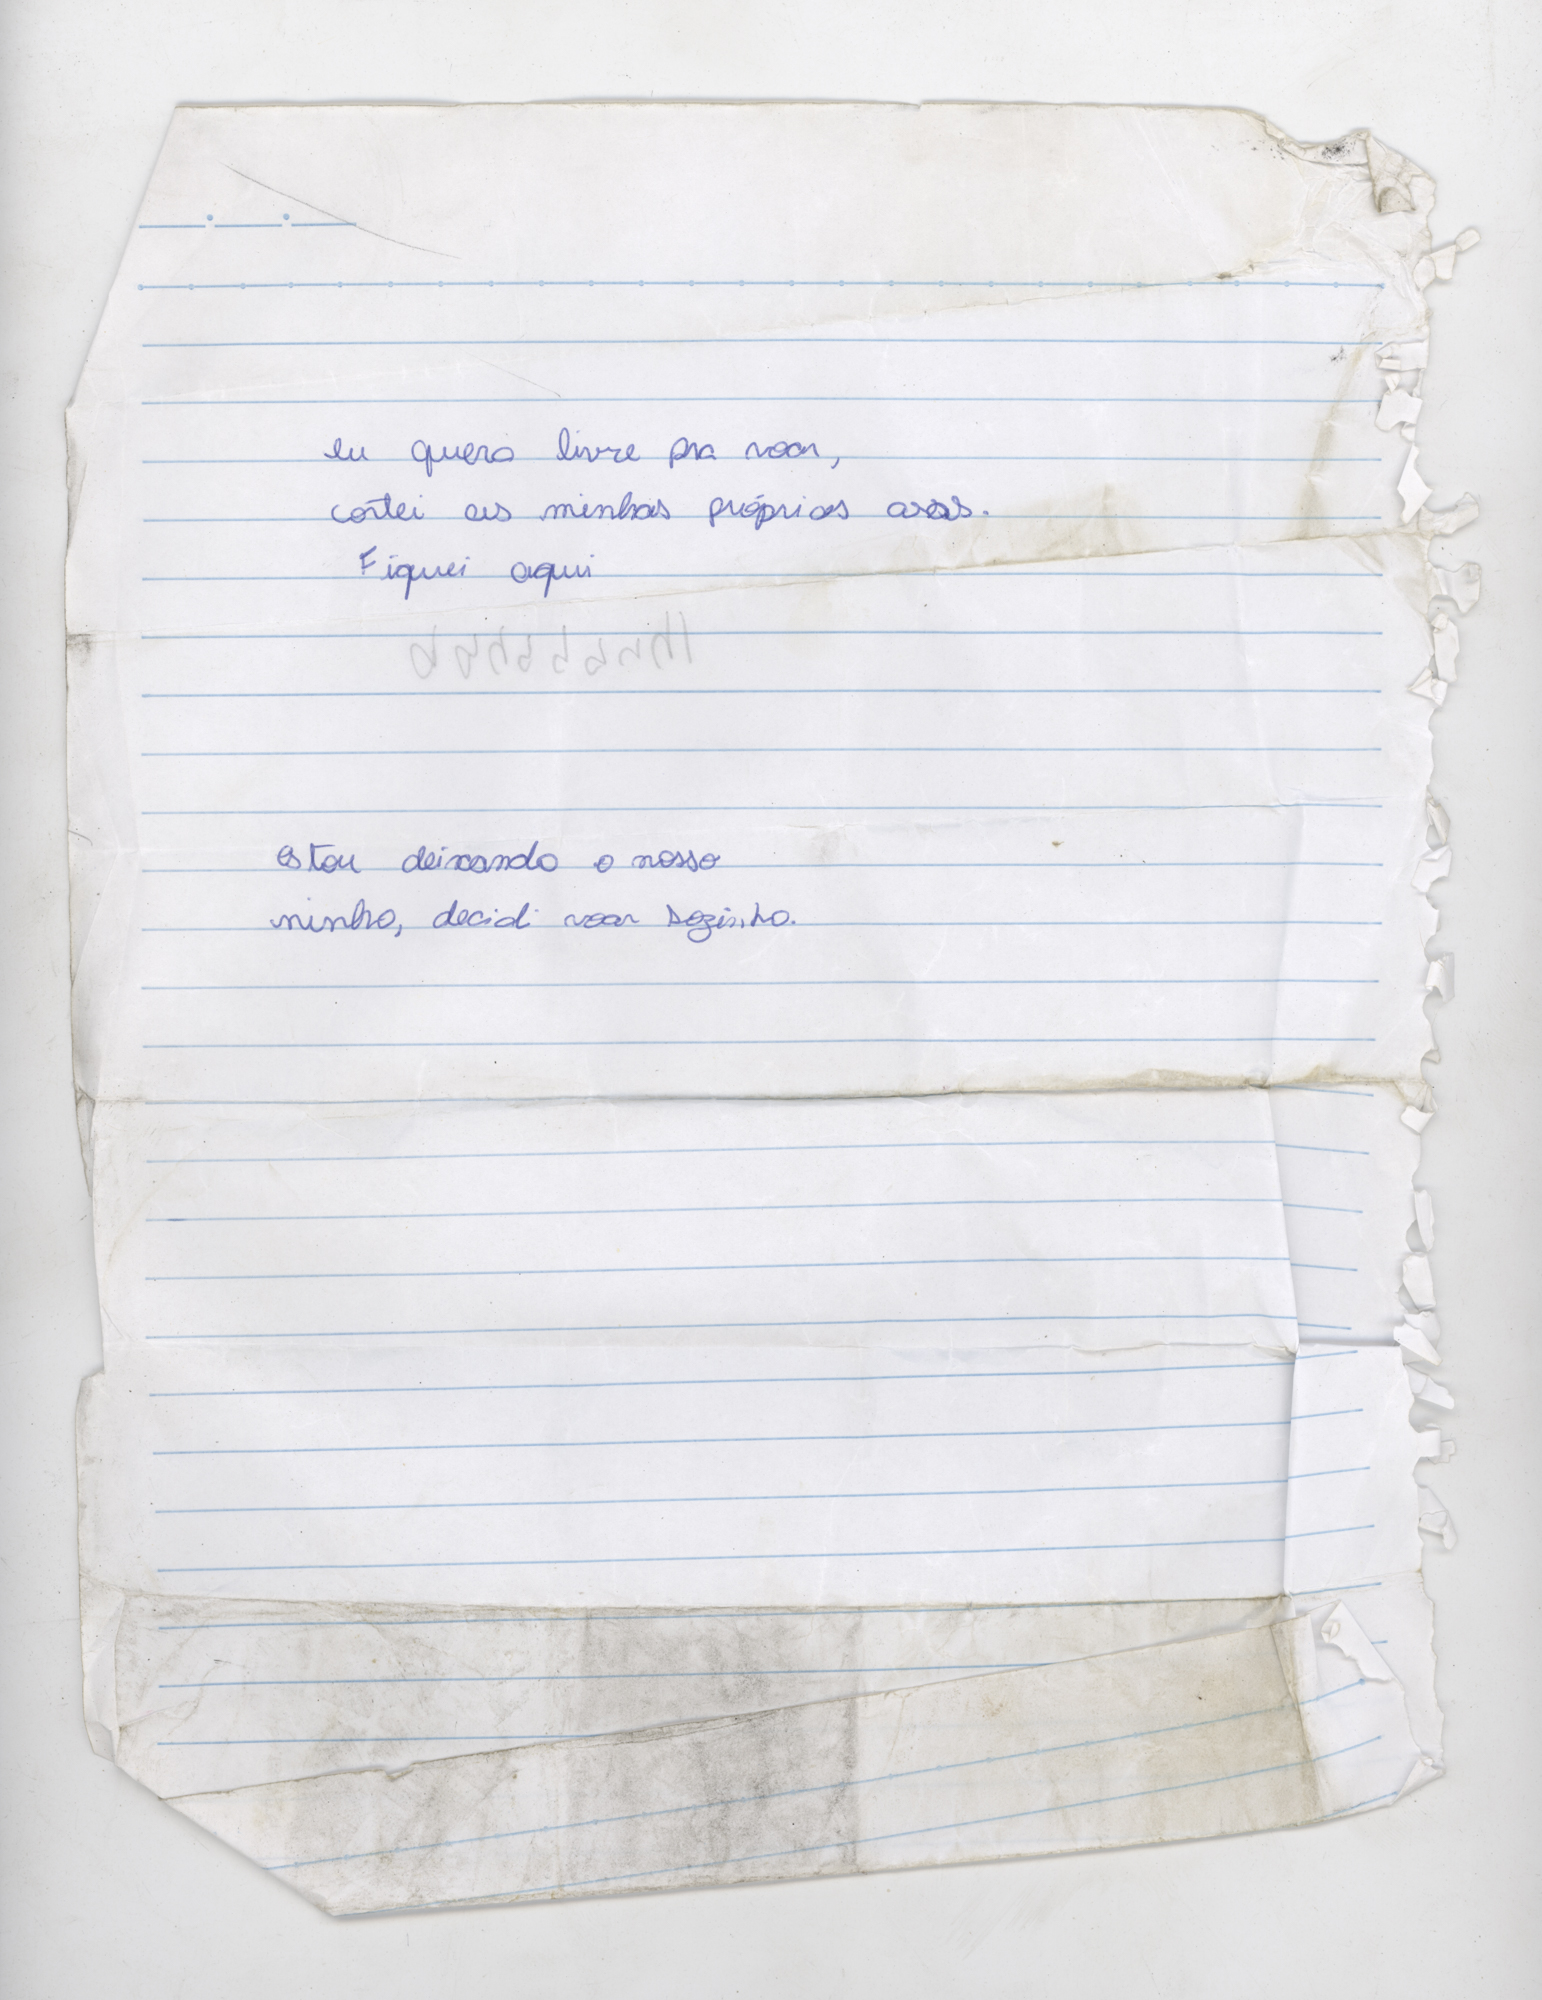 eu quero livre pra voar,
cortei as minhas próprias asas.
Fiquei aqui
estou deixando o nosso
ninho, decidi voar sozinho.